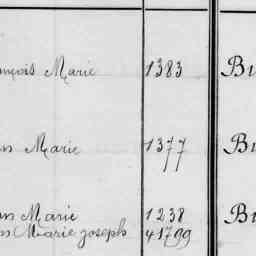 nçois Marie 1383 Bu
an Marie 1377 Bu
an Marie 1238 Bu
an Marie joseph 41799